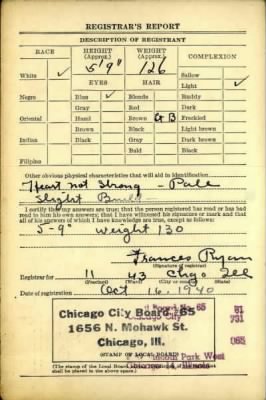 REGISTRAR'S REPORT
DESCRIPTION OF REGISTRANT
RACE HEIGHT (Approx.) WEIGHT (Approx.) COMPLEXION
5'9" 126
White ✓ EYES HAIR Sallow
Light ✓
Negro Blue ✓ Blonde Ruddy
Gray Red Dark
Oriental Hazel Brown Lt B Freckled
Brown Black Light brown
Indian Black Gray Dark brown
Bald Black
Filipino
Other obvious physical characteristics that will aid in identification
Heart not Strong - Pale
Slight Build
I certify that my answers are true; that the person registered has read or has had
read to him his own answers; that I have witnessed his signature or mark and that
all of his answers of which I have knowledge are true, except as follows:
5-9" weight 130
Frances Ryan
(Signature of registrar)
Registrar for 11 43 Chgo Ill
(City or county) (State)
Date of registration Oct 16, 1940
Chicago City Board, 65
1656 N. Mohawk St.
Chicago, Ill.
(STAMP OF LOCAL BOARD)
65
81
731
065
Lincoln Park West
Chicago 14, Illinois
(The stamp of the Local Board
shall be placed in the above space.)